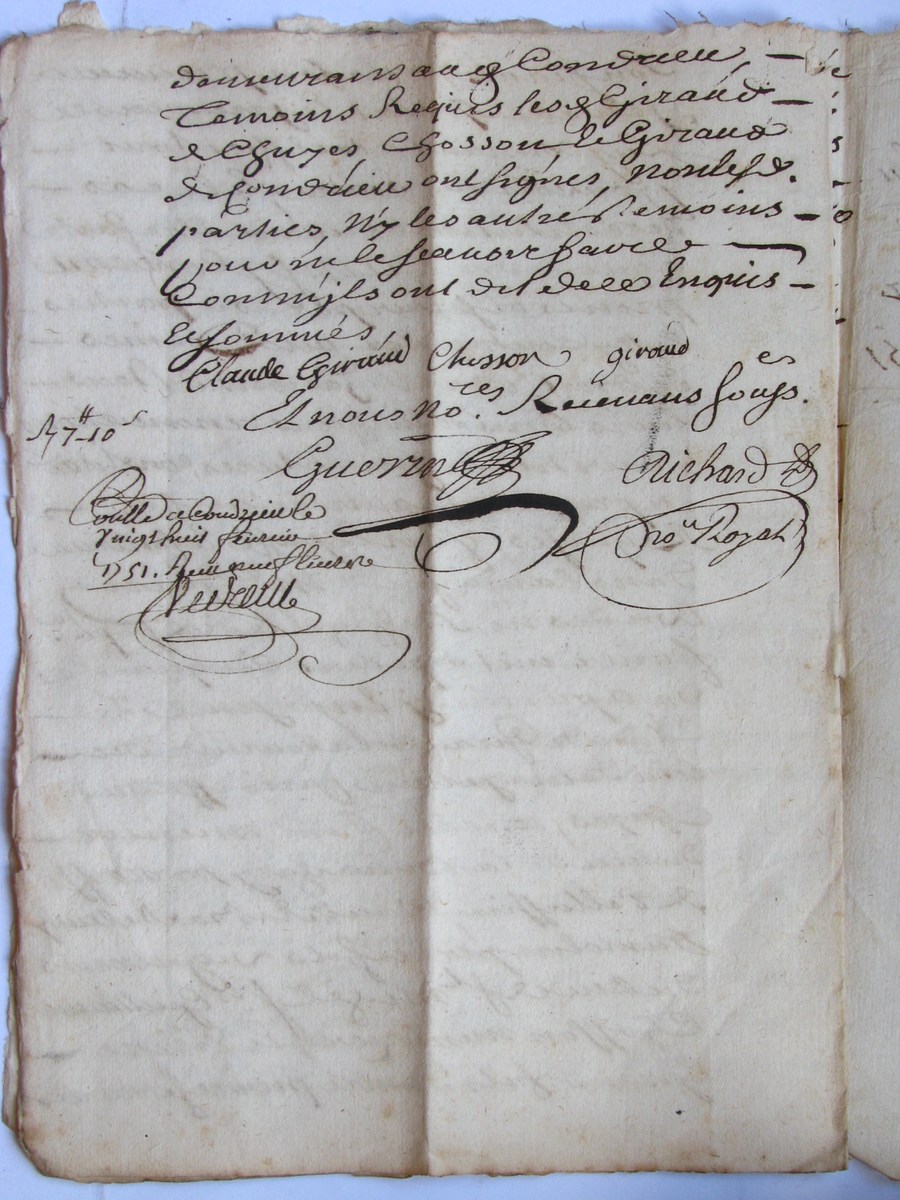 demeurans aud Condrieu,
Temoins Requis lesd Giraud
de Chuyes Chosson le Giraud
de Condrieu ont signés, non lesd.
parties, Ny les autres Temoins
pour ne le scavoir faire
Comm'jls ont dit de ce Enquis
et sommés,
Claude Giraud Chosson giraud
Et nous No.res Recevans souss.es
R 7# 10s
Guerin Richard
no.re Royal
Conllé a Condrieu le
vingt huit fevrier
1751. Reçu